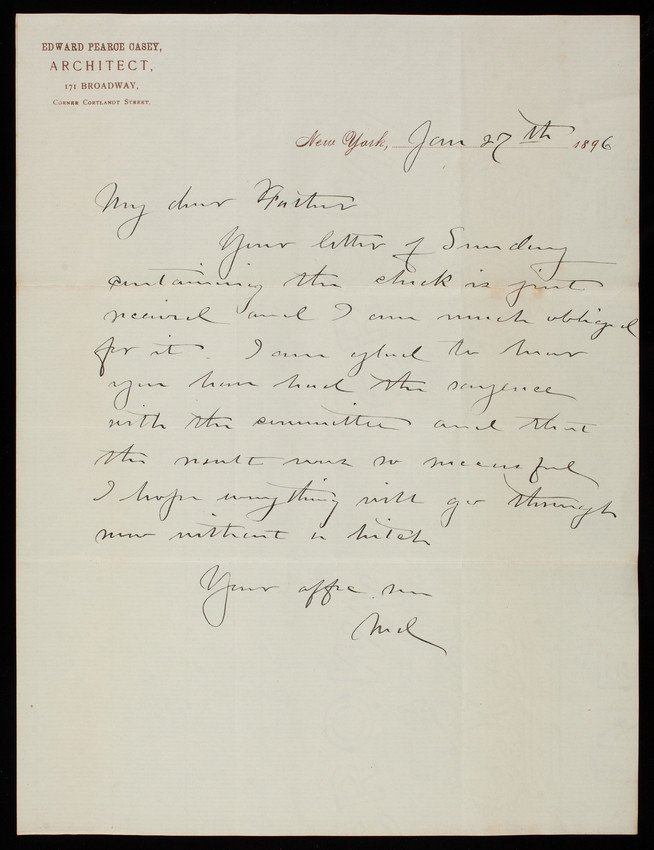 EDWARD PEARCE CASEY,
ARCHITECT,
171 BROADWAY,
CORNER CORTLANDT STREET.
New York, Jan 27th 1896
My dear Father
Your letter of Sunday
containing the check is just
received and I am much obliged
for it. I am glad to hear
you have had the
with the committee and that
the result was so successful
I hope everything will go through
now without a hitch
Your affec. son
Ned